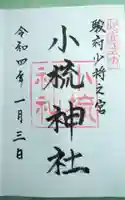 駿府少将之宮
小梳神社
令和四年一月三日